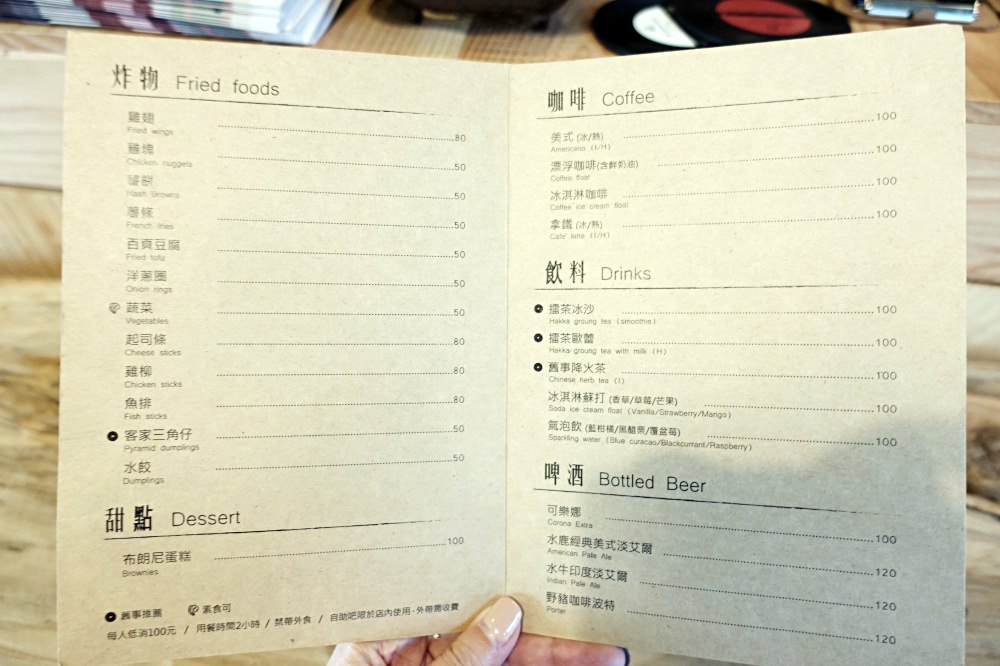 炸物 Fried foods
雞翅 80
Fried wings
雞塊 50
Chicken nuggets
薯餅 50
Hash Browns
薯條 50
French fries
百頁豆腐 50
Fried tofu
洋蔥圈 50
Onion rings
蔬菜 50
Vegetables
起司條 80
Cheese sticks
雞柳 80
Chicken sticks
魚排 80
Fish sticks
客家三角仔 50
Pyramid dumplings
水餃 50
Dumplings
甜點 Dessert
布朗尼蛋糕 100
Brownies
舊事推薦 素食可
每人低消100元 / 用餐時間2小時 / 禁帶外食 / 自助吧限於店內使用，外帶需收費
咖啡 Coffee
美式 (冰/熱) 100
Americano (I/H)
漂浮咖啡(含鮮奶油) 100
Coffee float
冰淇淋咖啡 100
Coffee ice cream float
拿鐵 (冰/熱) 100
Cafe' latte (I/H)
飲料 Drinks
擂茶冰沙 100
Hakka groung tea (smoothie)
擂茶歐蕾 100
Hakka groung tea with milk (H)
舊事降火茶 100
Chinese herb tea (I)
冰淇淋蘇打 (香草/草莓/芒果) 100
Soda ice cream float (Vanilla/Strawberry/Mango)
氣泡飲 (藍柑橘/黑醋栗/覆盆莓) 100
Sparkling water (Blue curacao/Blackcurrant/Raspberry)
啤酒 Bottled Beer
可樂娜 100
Corona Extra
水鹿經典美式淡艾爾 120
American Pale Ale
水牛印度淡艾爾 120
Indian Pale Ale
野豬咖啡波特 120
Porter